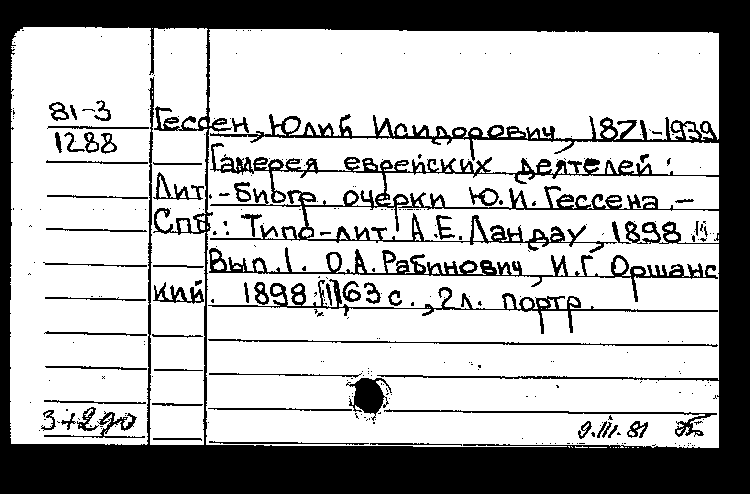 81-3
1288
Гессен, Юлий Исидорович, 1871-1939
Галерея еврейских деятелей :
Лит.-биогр. очерки Ю.И. Гессена. –
Спб.: Типо-лит. А.Е. Ландау, 1898.
Вып.1. О.А. Рабинович, И.Г. Оршанс
кий. 1898. 63 с., 2л. портр.
9.III.81